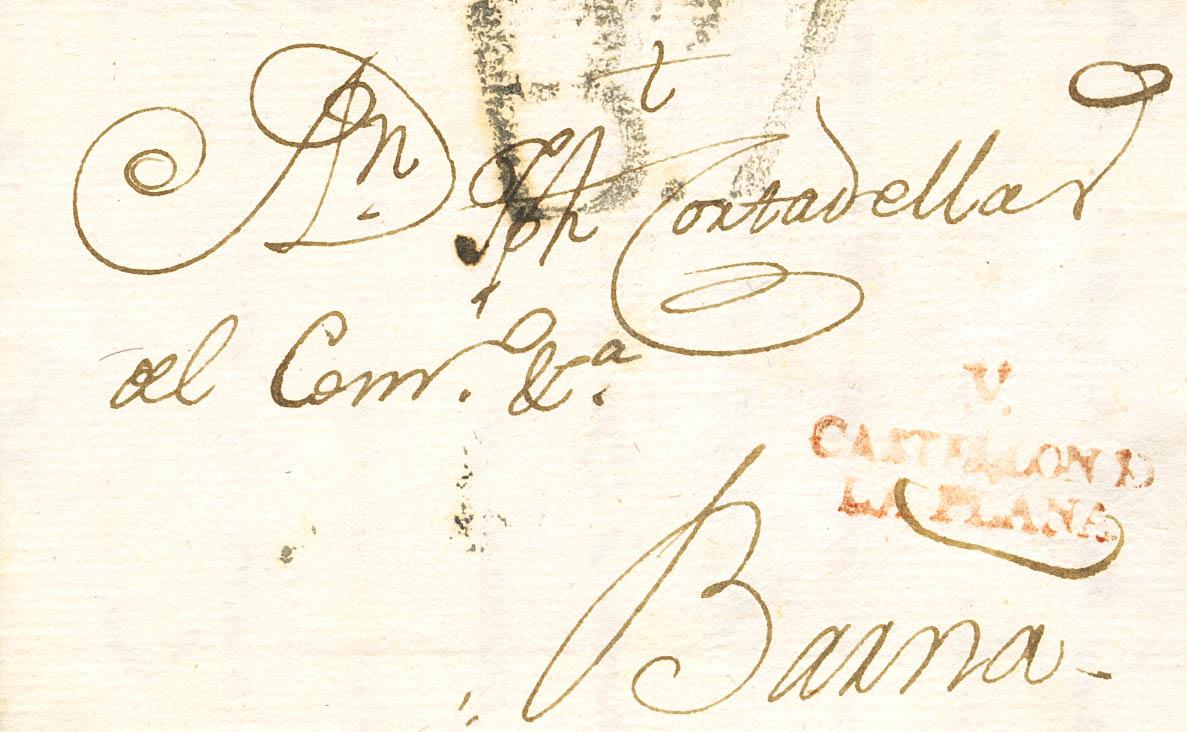 A Dn Jph Cortadellas
del Comr. &a.
V.
CASTELLON D
LA PLANA
Barna